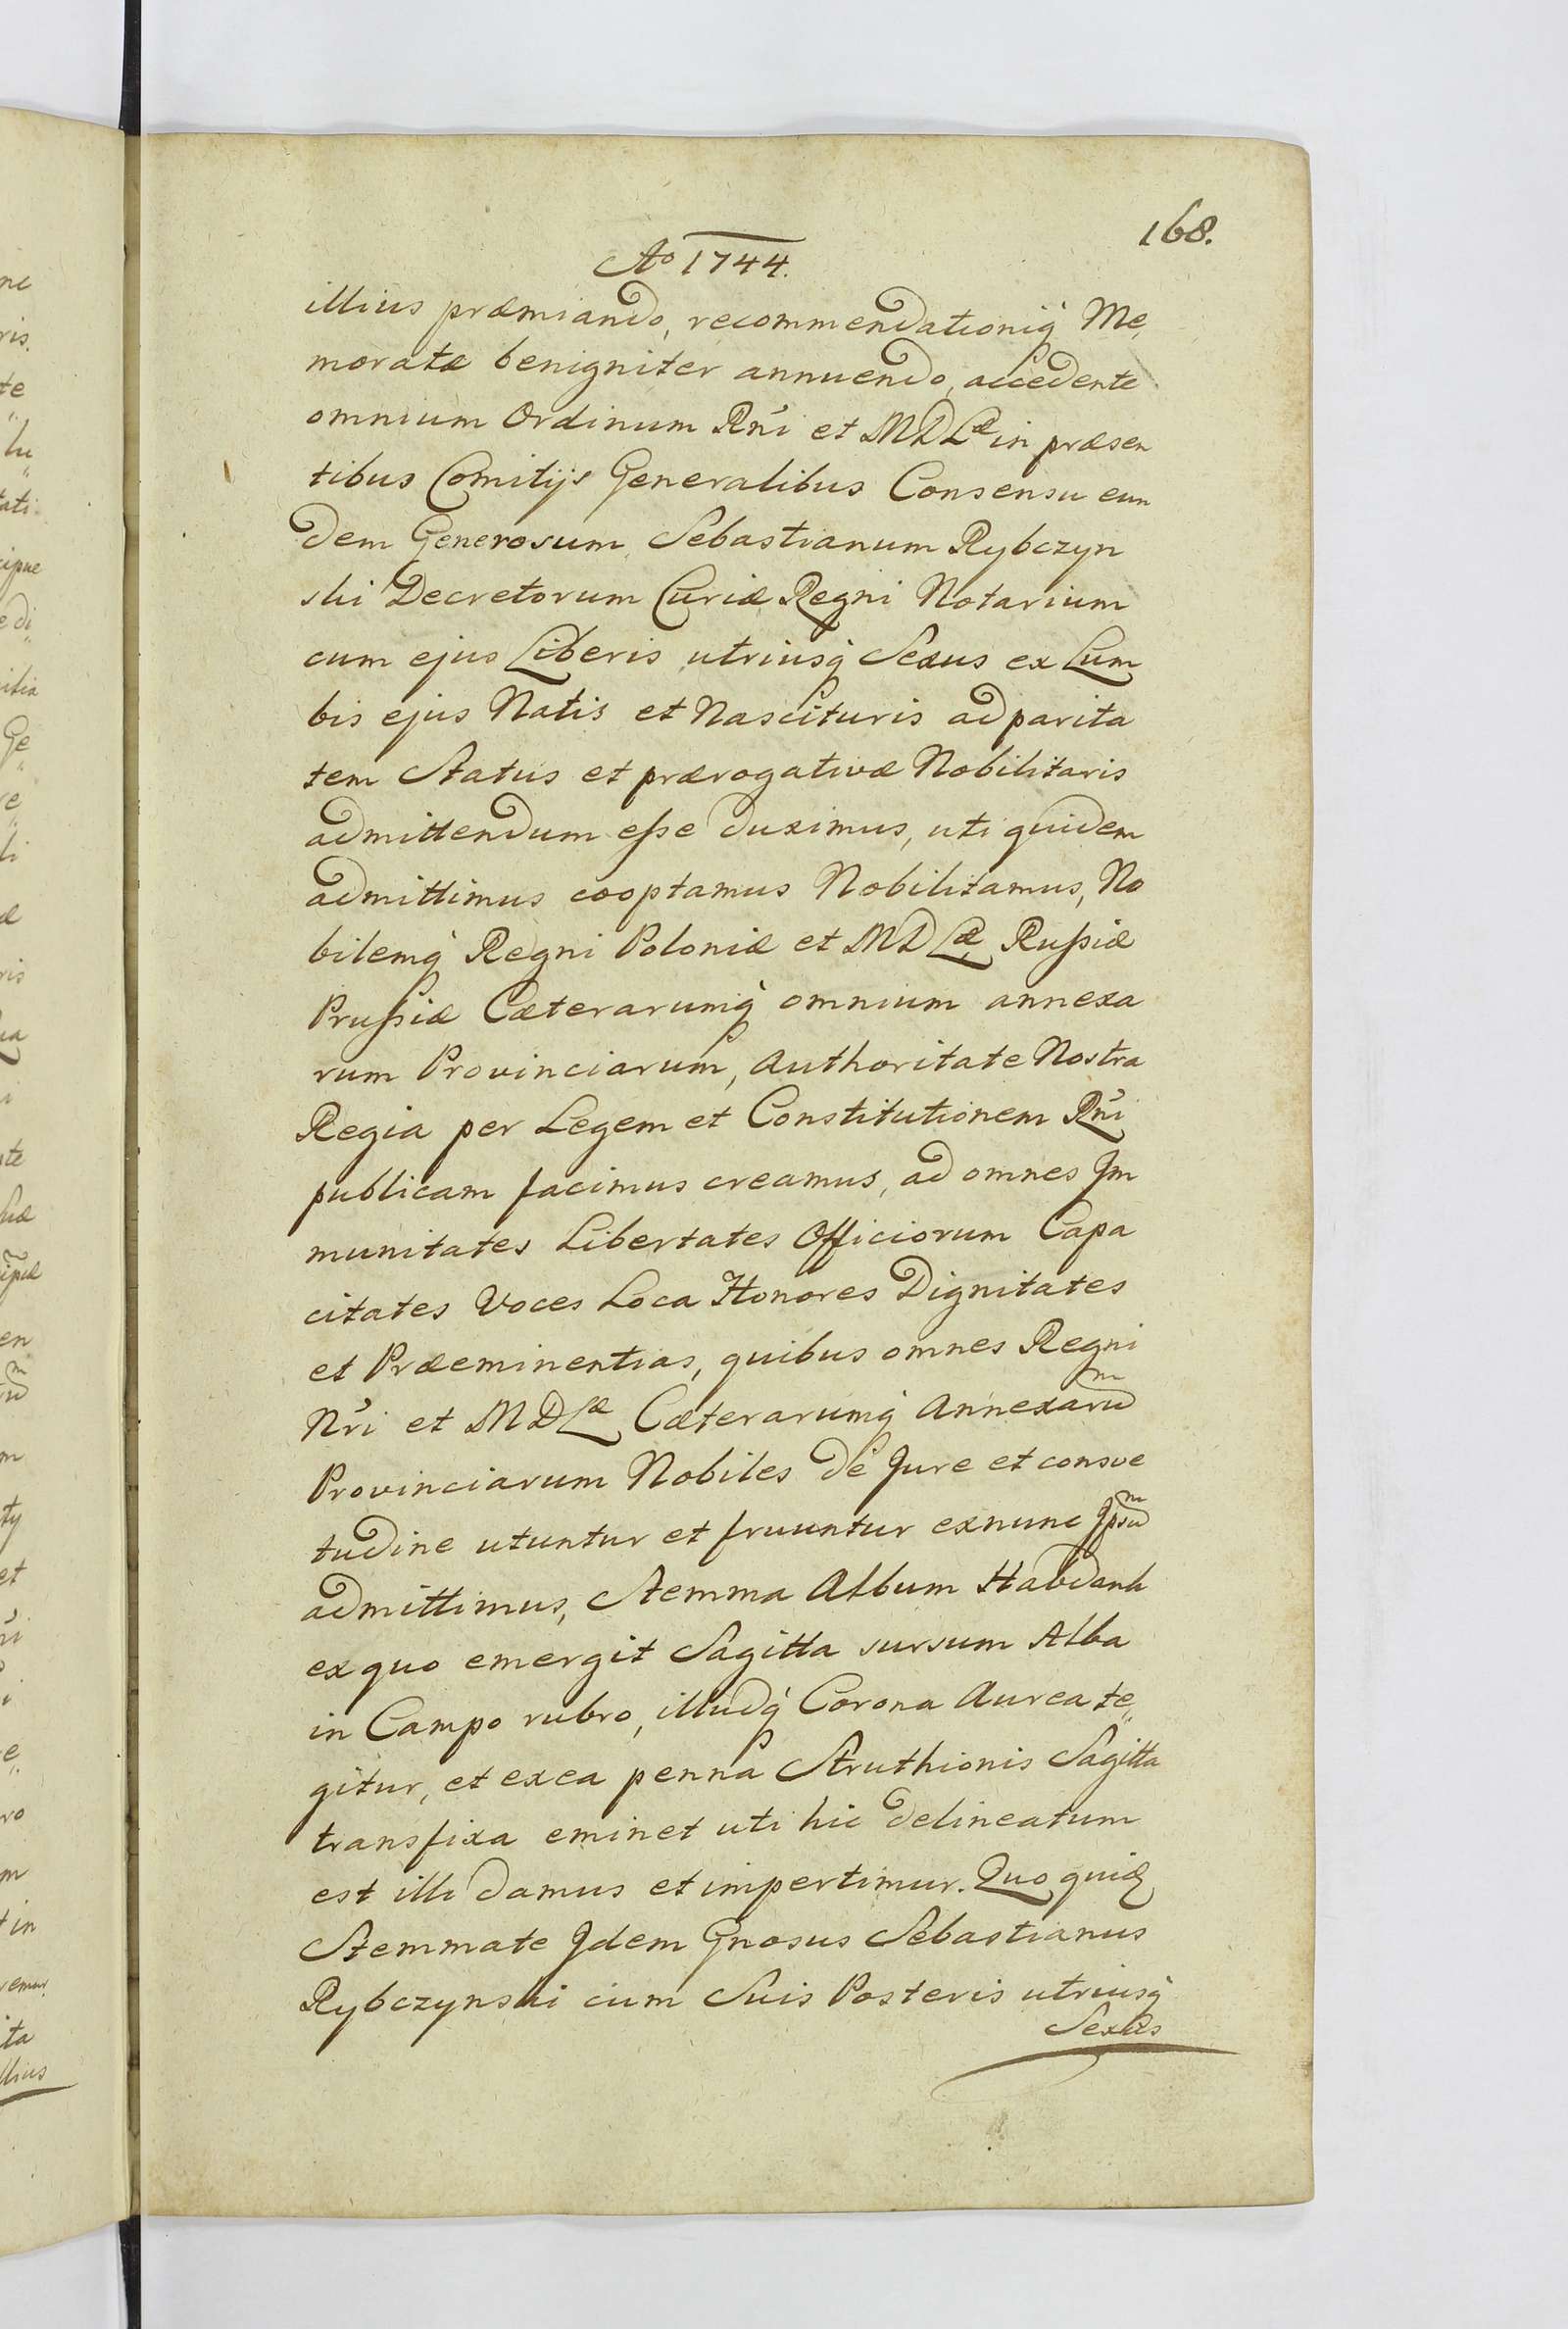 168.
Ao 1744.
illius præmiando, recommendationiq Me,
moratæ benigniter annuendo, accedente
omnium Ordinum Rni et MDLæ in præsen
tibus Comitijs Generalibus Consensu eun
dem Generosum Sebastianum Rybczyn
ski Decretorum Curiæ Regni Notarium
cum ejus Liberis utriusq Sexus ex Lum
bis ejus Natis et Nascituris ad parita
tem Status et prærogativæ Nobilitaris
admittendum eße duximus, uti quidem
admittimus cooptamus Nobilitamus, No
bilemq Regni Poloniæ et MDLæ, Rußiæ
Prußiæ Cæterarumq omnium annexa
rum Provinciarum, Authoritate Nostra
Regia per Legem et Constitutionem Rni
publicam facimus creamus, ad omnes Jm
munitates Libertates Officiorum Capa
citates Voces Loca Honores Dignitates
et Præeminentias, quibus omnes Regni
Nri et MDLæ Cæterarumq Annexarum
Provinciarum Nobiles de Jure et consve
tudine utuntur et fruuntur exnunc Jpsum
admittimus, Stemma Album Habdank
ex quo emergit Sagitta sursum Alba
in Campo rubro, illudq Corona Aurea te,,
gitur, et exea penna Struthionis Sagitta
transfixa eminet uti hic delineatum
est illi damus et impertimur. Quo quid
Stemmate Jdem Gnosus Sebastianus
Rybczynski cum Suis Posteris utriusq
Sexus